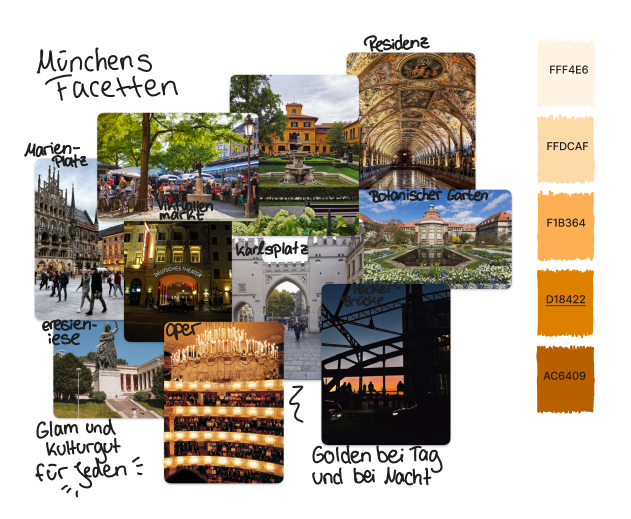 Münchens
Facetten
Residenz
Marien-
Platz
Viktualien
markt
Botanischer Garten
Karlsplatz
DEUTSCHES THEATER
Hacker
Brücke
eresien-
iese
Oper
Glam und
Kulturgut
für Jeden
Golden bei Tag
und bei Nacht
FFF4E6
FFDCAF
F1B364
D18422
AC6409